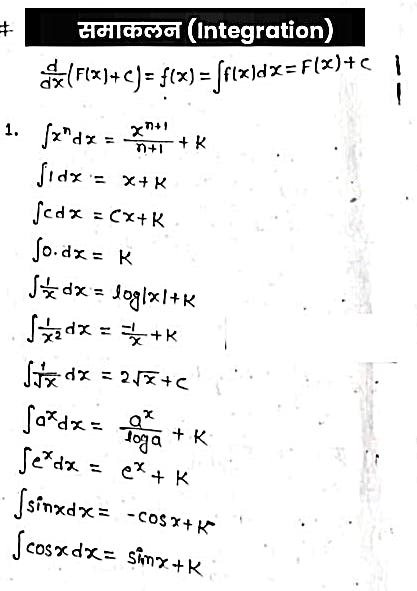 # समाकलन (Integration)
d/dx (F(x)+c) = f(x) = ∫f(x)dx = F(x)+c
1. ∫xⁿdx = xⁿ⁺¹/n+1 + K
∫1dx = x+K
∫cdx = Cx+K
∫0.dx = K
∫1/x dx = log|x|+K
∫1/x² dx = -1/x + K
∫1/√x dx = 2√x+c
∫aˣdx = aˣ/loga + K
∫eˣdx = eˣ + K
∫sinxdx = -cosx+K
∫cosxdx = sinx+K